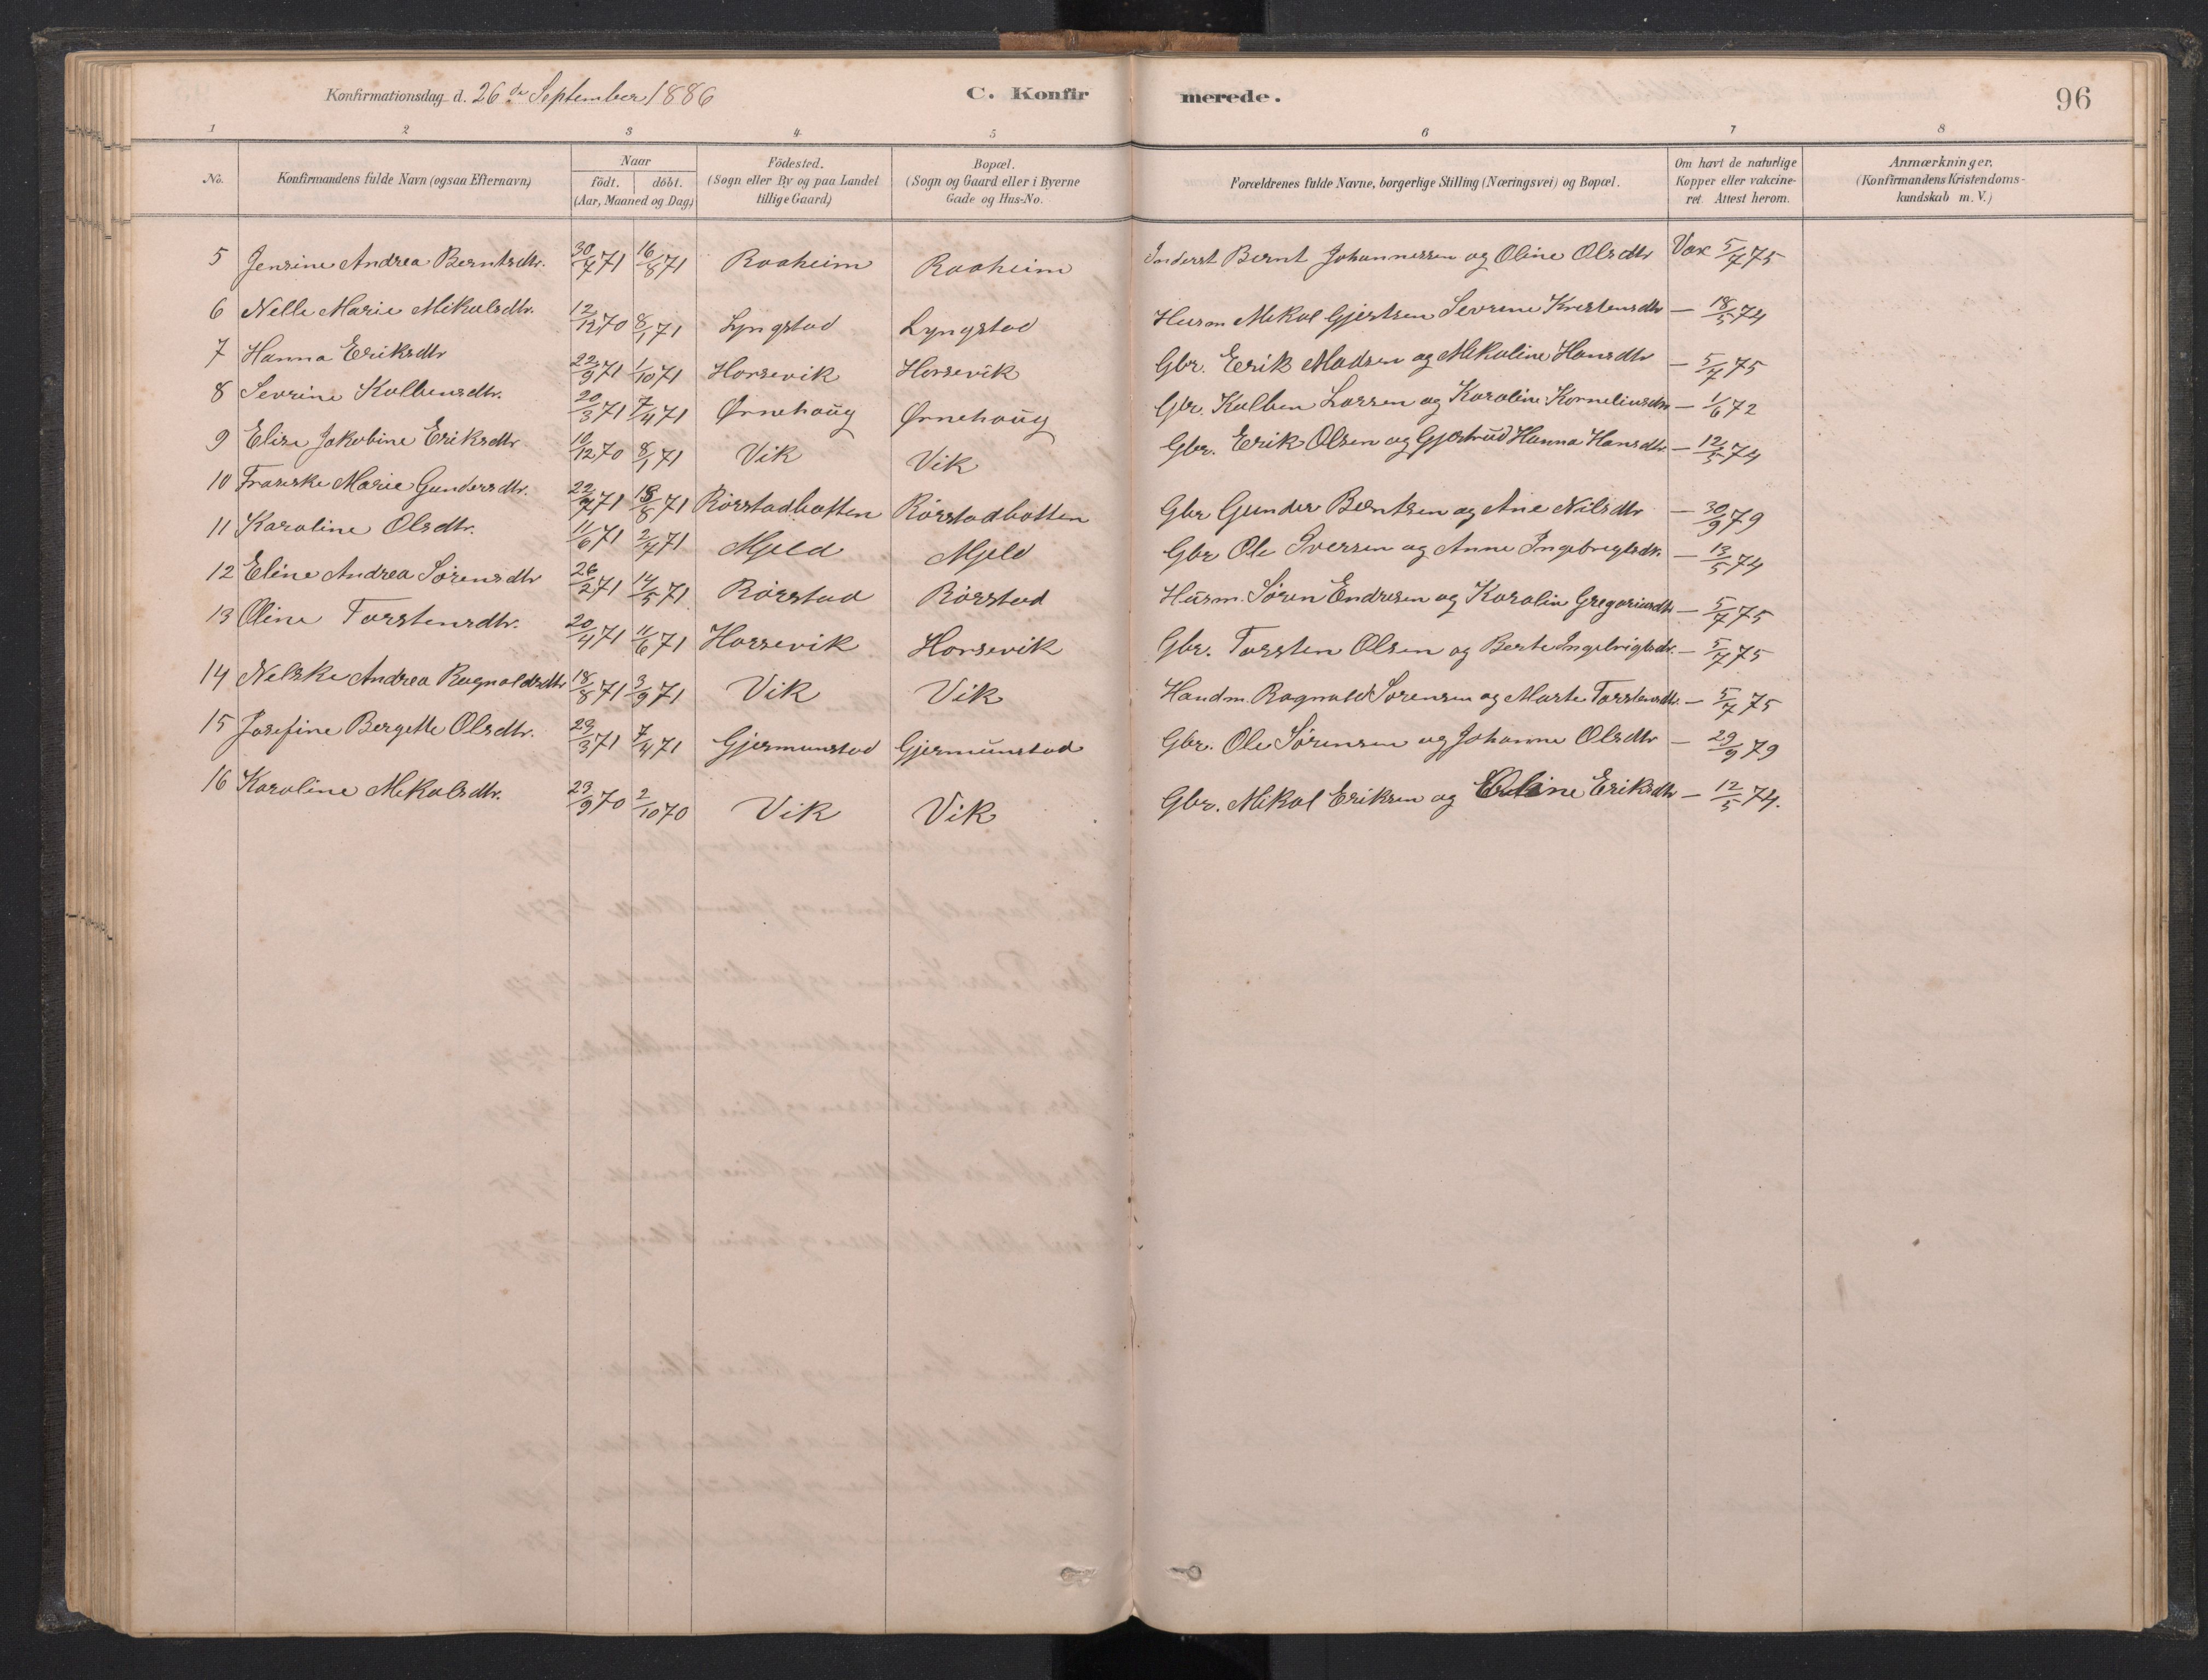 Konfirmationsdag d. 26de September 1886 C. Konfirmerede. 96
1 2 3 4 5 6 7 8
No. Konfirmandens fulde Navn (ogsaa Efternavn) Naar födt. döbt. (Aar, Maaned og Dag) Födested. (Sogn eller By og paa Landet tillige Gaard) Bopæl. (Sogn og Gaard eller i Byerne Gade og Hus-No. Forældrenes fulde Navne, borgerlige Stilling (Næringsvei) og Bopæl. Om havt de naturlige Kopper eller vakcineret. Attest herom. Anmærkninger, (Konfirmandens Kristendomskundskab m. V.)
5 Jensine Andrea Berntsdtr. 30/7 71 16/8 71 Roaheim Roaheim Inderst Bernt Johannessen og Oline Olsdtr Vax 5/7 75
6 Nelle Marie Mikalsdtr. 12/12 70 8/1 71 Lyngstad Lyngstad Husm Mikal Gjertsen Sevrine Kristensdtr — 18/5 74
7 Hanna Eriksdtr 22/9 71 1/10 71 Horsevik Horsevik Gbr. Erik Madsen og Mikaline Hansdtr — 5/7 75
8 Sevrine Kolbensdtr. 20/3 71 7/4 71 Ørnehaug Ørnehaug Gbr. Kolben Larsen og Karoline Korneliusdtr — 1/6 72
9 Elise Jakobine Eriksdtr 10/12 70 8/1 71 Vik Vik Gbr. Erik Olsen og Gjertrud Hanna Hansdtr. — 12/5 74
10 Franske Marie Gundersdtr. 22/7 71 13/8 71 Rörstadbotten Rörstadbotten Gbr Gunder Berntsen og Ane Nilsdtr — 30/9 79
11 Karoline Olsdtr. 11/6 71 2/7 71 Mjeld Mjeld Gbr Ole Iversen og Anne Ingebregtsdtr. — 13/5 74
12 Eline Andrea Sörensdtr 26/2 71 14/5 71 Rörstad Rörstad Husm. Sören Endresen og Karolin Gregoriusdtr — 5/7 75
13 Oline Torstensdtr. 20/4 71 11/6 71 Horsevik Horsevik Gbr. Torsten Olsen og Berte Ingebrigtsdtr. — 5/7 75
14 Nelske Andrea Ragnaldsdtr 18/8 71 3/9 71 Vik Vik Handm. Ragnald Sörensen og Marte Torstensdtr. — 5/7 75
15 Josefine Bergette Olsdtr. 23/3 71 7/4 71 Gjermunstad Gjermunstad Gbr. Ole Sörensen og Johanne Olsdtr — 29/9 79
16 Karoline Mikalsdtr. 23/9 70 2/10 70 Vik Vik Gbr. Mikal Eriksen og Eriksdtr — 12/5 74.